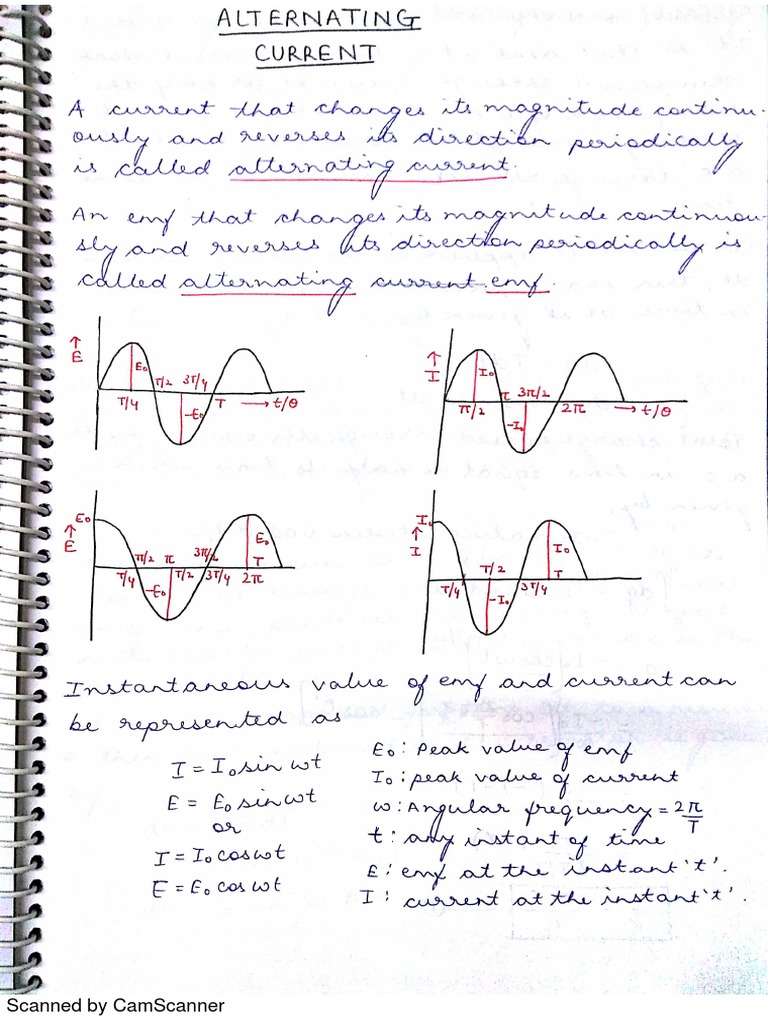 ALTERNATING
CURRENT
A current that changes its magnitude continu-
ously and reverses its direction periodically
is called alternating current.
An emf that changes its magnitude continuou-
sly and reverses its direction periodically is
called alternating current emf.
↑E E₀ T/2 3T/4 T/4 -E₀ T → t/θ
↑I I₀ π 3π/2 π/2 -I₀ 2π → t/θ
E₀ ↑E π/2 π 3π/2 E₀ T T/4 -E₀ T/2 3T/4 2π
I₀ ↑I T/2 I₀ T T/4 -I₀ 3T/4
Instantaneous value of emf and current can
be represented as
I = I₀ sin ωt
E = E₀ sin ωt
or
I = I₀ cos ωt
E = E₀ cos ωt
E₀ : Peak value of emf
I₀ : peak value of current
ω : Angular frequency = 2π/T
t : any instant of time
E : emf at the instant 't'.
I : current at the instant 't'.
Scanned by CamScanner